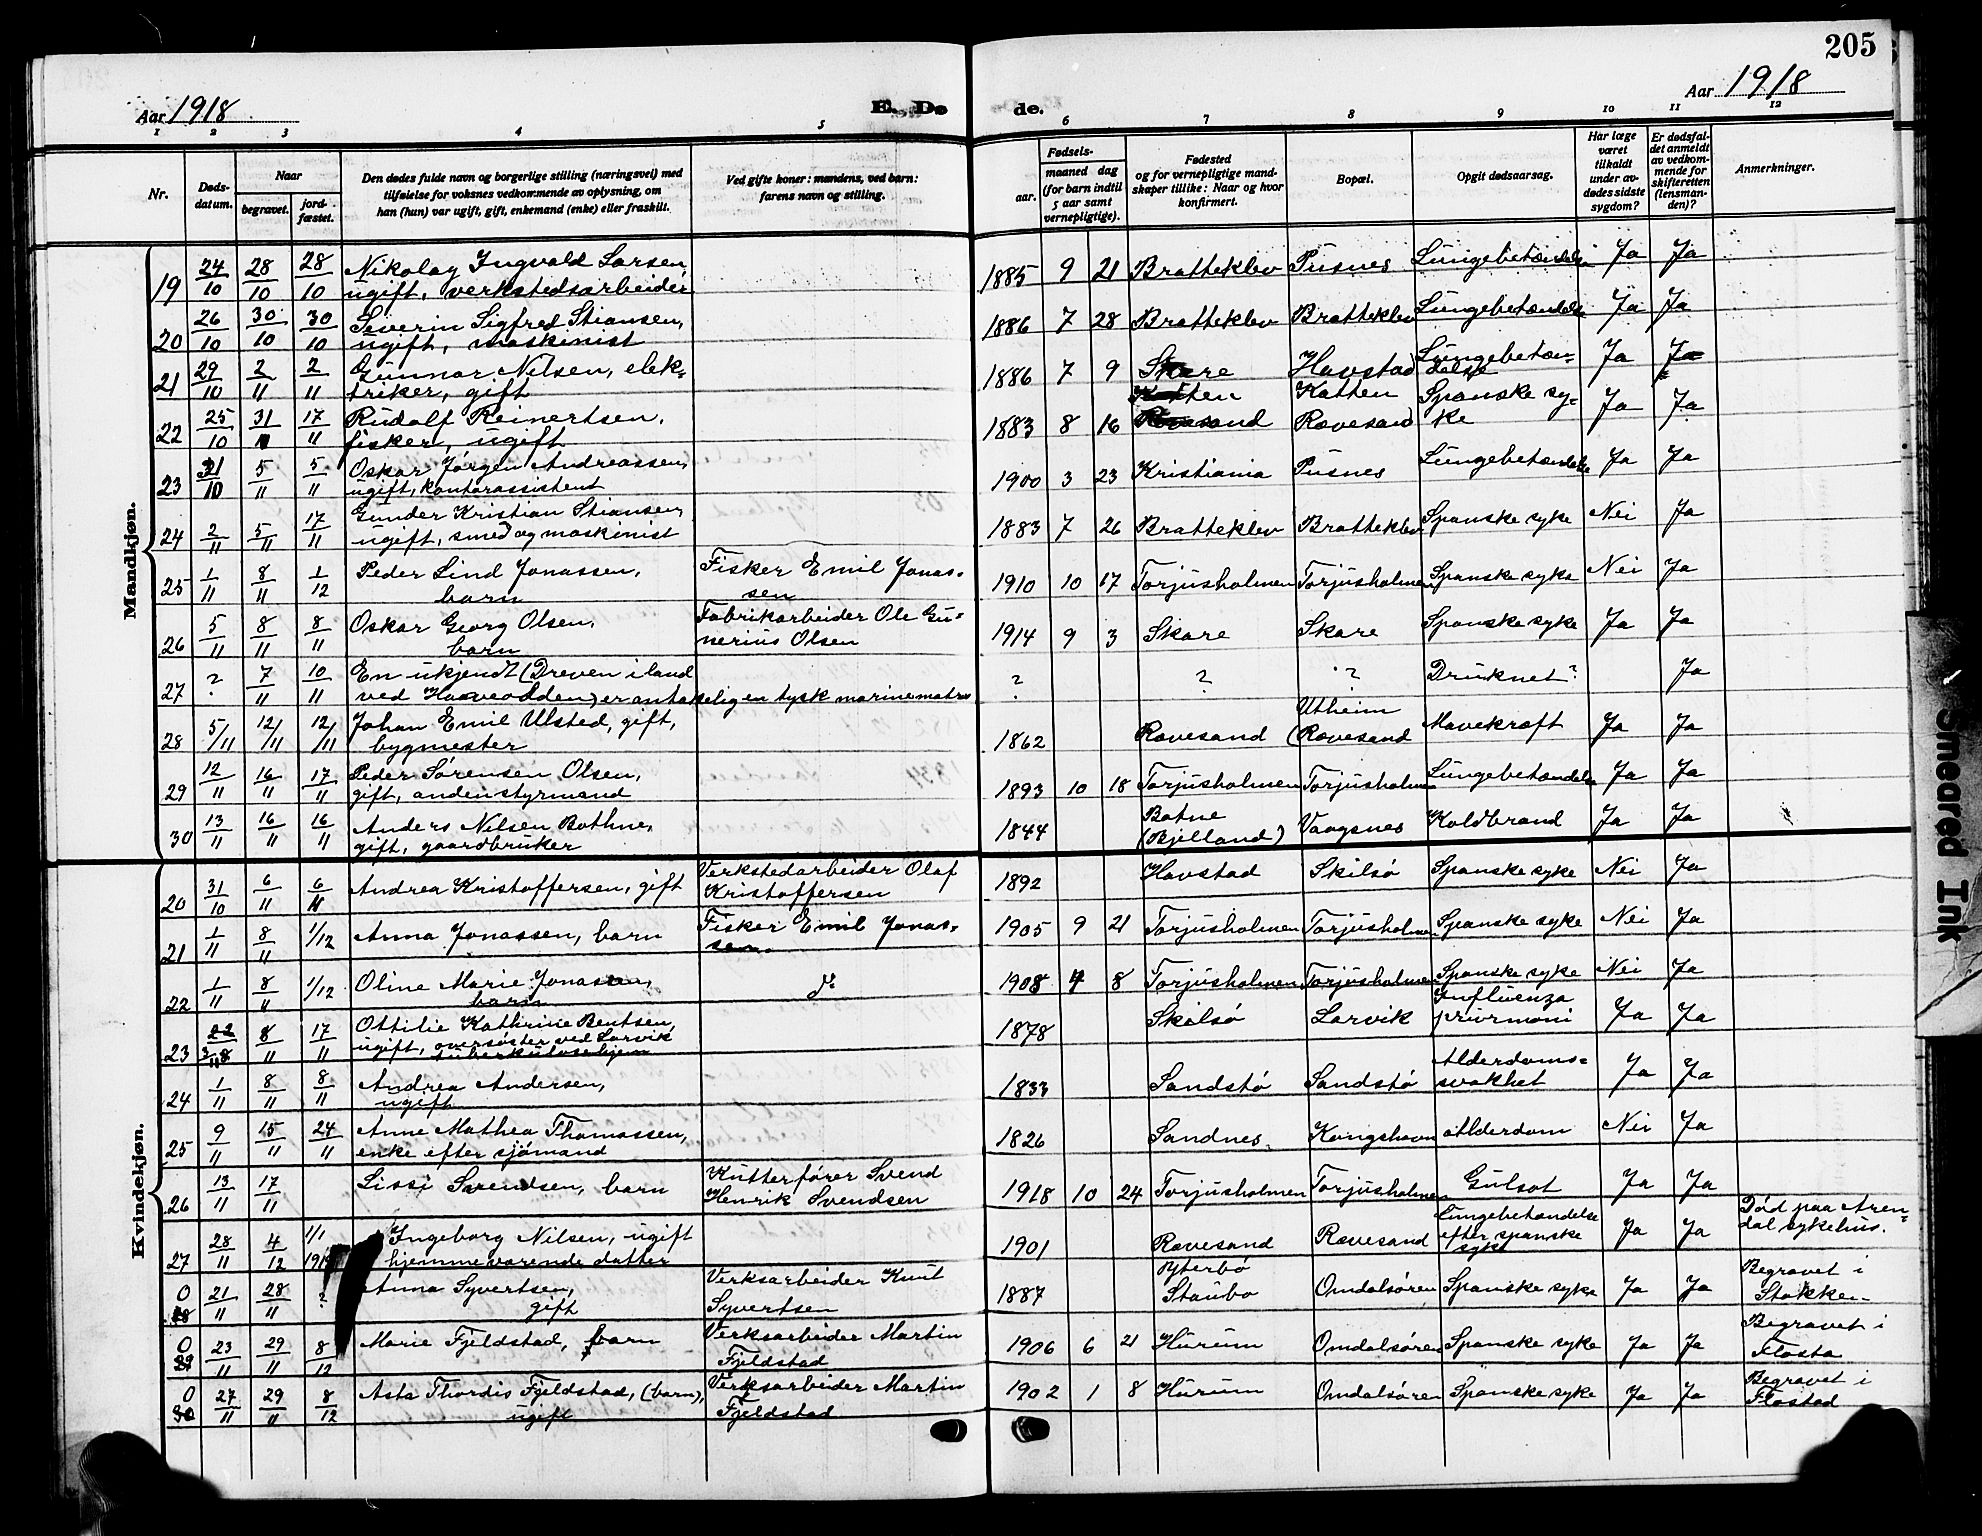 205
Aar 1918.
E. Dø
de.
Aar 1918
1 2 3 4 5 6 7 8 9 10 11 12
Nr.
Døds-
datum.
Naar
begravet.
jord-
fæstet.
Den dødes fulde navn og borgerlige stilling (næringsvei) med
tilføielse for voksnes vedkommende av oplysning, om
han (hun) var ugift, gift, enkemand (enke) eller fraskilt.
Ved gifte koner: mandens, ved barn:
farens navn og stilling.
Fødsels-
aar.
maaned dag
(for barn indtil
5 aar samt
vernepligtige).
Fødested
og for vernepligtige mand-
skaper tillike: Naar og hvor
konfirmert.
Bopæl.
Opgit dødsaarsag.
Har læge
været
tilkaldt
under av-
dødes sidste
sygdom?
Er dødsfal-
det anmeldt
av vedkom-
mende for
skifteretten
(lensman-
den)?
Anmerkninger.
Mandkjøn.
19 24/10 28/10 28/10 Nikolay Ingvald Larsen, 1885 9 21 Bratteklev Pusnes Lungebetændelse Ja Ja
ugift, verkstedsarbeider
20 26/10 30/10 30/10 Severin Sigfred Stiansen, 1886 7 28 Bratteklev Bratteklev Lungebetændelse Ja Ja
ugift, maskinist
21 29/10 2/11 2/11 Gunnar Nilsen, elek- 1886 7 9 Skare Havstad Lungebetæn- Ja Ja
triker, gift delse
22 25/10 31/10 17/11 Rudolf Reinertsen, 1883 8 16 Katten Katten Spanske sy- Ja Ja
fisker, ugift Rævesand Rævesand ke
23 31/10 5/11 5/11 Oskar Jørgen Andreassen, 1900 3 23 Kristiania Pusnes Lungebetændelse Ja Ja
ugift, kontorassistent
24 2/11 5/11 17/11 Gunder Kristian Stiansen, 1883 7 26 Bratteklev Bratteklev Spanske syke Nei Ja
ugift, smed og maskinist
25 1/11 8/11 1/12 Peder Lind Jonassen, Fisker Emil Jonas- 1910 10 17 Torjusholmen Torjusholmen Spanske syke Nei Ja
barn sen
26 5/11 8/11 8/11 Oskar Georg Olsen, Fabrikarbeider Ole Gu- 1914 9 3 Skare Skare Spanske syke Ja Ja
barn nerius Olsen
27 ? 7/11 10/11 En ukjendt (Dreven i land ? ? ? Druknet? Ja
ved Haaveodden) er antakelig en tysk marinematros
28 5/11 12/11 12/11 Johan Emil Ulsted, gift, 1862 Rævesand Utheim Mavekræft Ja Ja
bygmester (Rævesand
29 12/11 16/11 17/11 Peder Sørensen Olsen, 1893 10 18 Torjusholmen Torjusholmen Lungebetændelse Ja Ja
gift, andenstyrmand
30 13/11 16/11 16/11 Anders Nilsen Bothne, 1844 Botne Vaagsnes Koldbrand Ja Ja
gift, gaardbruker (Bjelland)
Kvindekjøn.
20 31/10 6/11 6/11 Andrea Kristoffersen, gift Verkstedarbeider Olaf 1892 Havstad Skilsø Spanske syke Nei Ja
Kristoffersen
21 1/11 8/11 1/12 Anna Jonassen, barn Fisker Emil Jonas- 1905 9 21 Torjusholmen Torjusholmen Spanske syke Nei Ja
sen.
22 1/11 8/11 1/12 Oline Marie Jonassen, d° 1908 4 8 Torjusholmen Torjusholmen Spanske syke Nei Ja
barn
23 8/11 17/11 Ottilie Kathrine Bentsen, 1878 Skilsø Larvik Influenza Ja Ja
ugift, oversøster ved Larvik
tuberkulosehjem
24 1/11 8/11 8/11 Andrea Andersen, 1833 Sandstø Sandstø Alderdoms- Ja Ja
ugift svakhet
25 9/11 15/11 24/11 Anne Mathea Thomassen, 1826 Sandnes. Kongshavn Alderdom Nei Ja
enke efter sjømand
26 13/11 17/11 Lissi Svendsen, barn Kutterfører Svend 1918 10 24 Torjusholmen Torjusholmen Gulsot Ja Ja
Henrik Svendsen
27 28/11 4/12 1/1 Ingeborg Nilsen, ugift 1901 Rævesand Rævesand Lungebetændelse Ja Ja Død paa Aren-
hjemmeværende datter efter spanske dal sykehus.
syke
0 21/11 28/11 ? Anna Syvertsen, Verksarbeider Knut 1887 Ytterbø Omdalsøren Spanske syke Ja Ja Begravet i
28 gift Syvertsen Staubo Stokken
0 23/11 29/11 8/12 Marie Fjeldstad, barn Verksarbeider Martin 1906 6 21 Hurum Omdalsøren Spanske syke Ja Ja Begravet i
29 Fjeldstad Flosta
0 27/11 29/11 8/12 Asta Thordis Fjeldstad, (barn), Verksarbeider Martin 1902 1 8 Hurum Omdalsøren Spanske syke Ja Ja Begravet i
30 ugift Fjeldstad Flostad
Smeared Ink